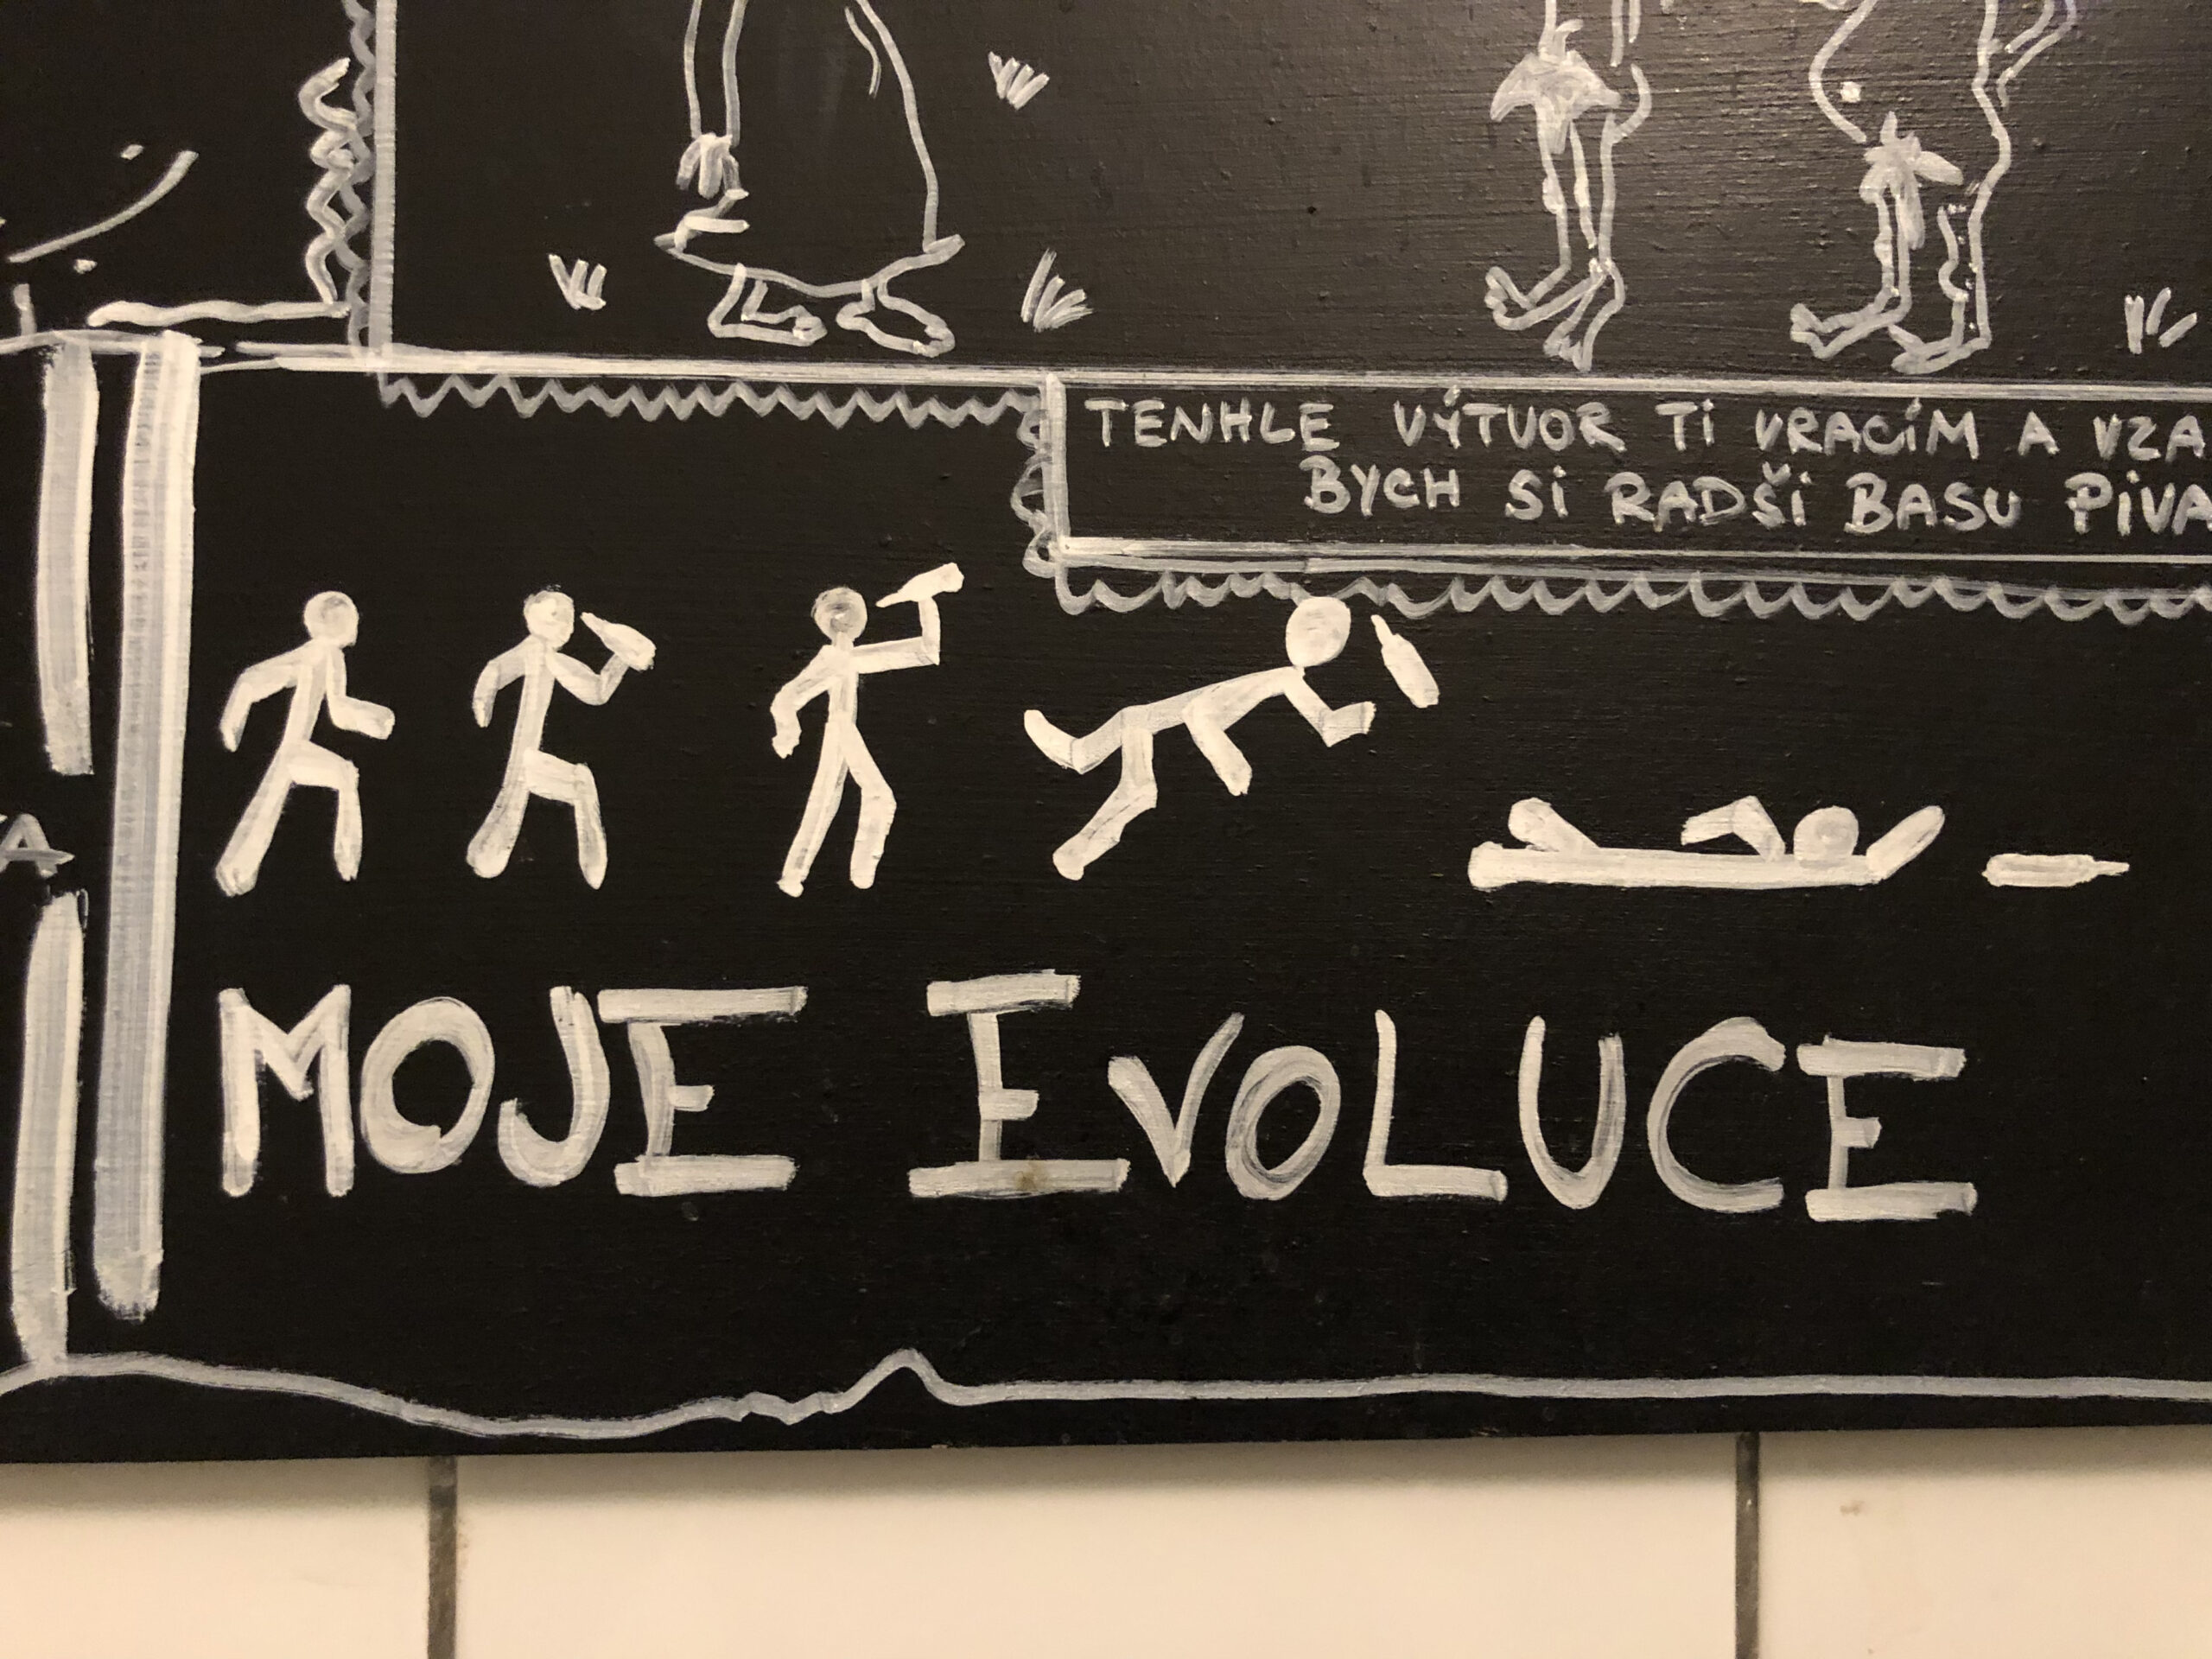 TENHLE VÝTVOR TI VRACÍM A VZA
BYCH SI RADŠI BASU PIVA
MOJE EVOLUCE